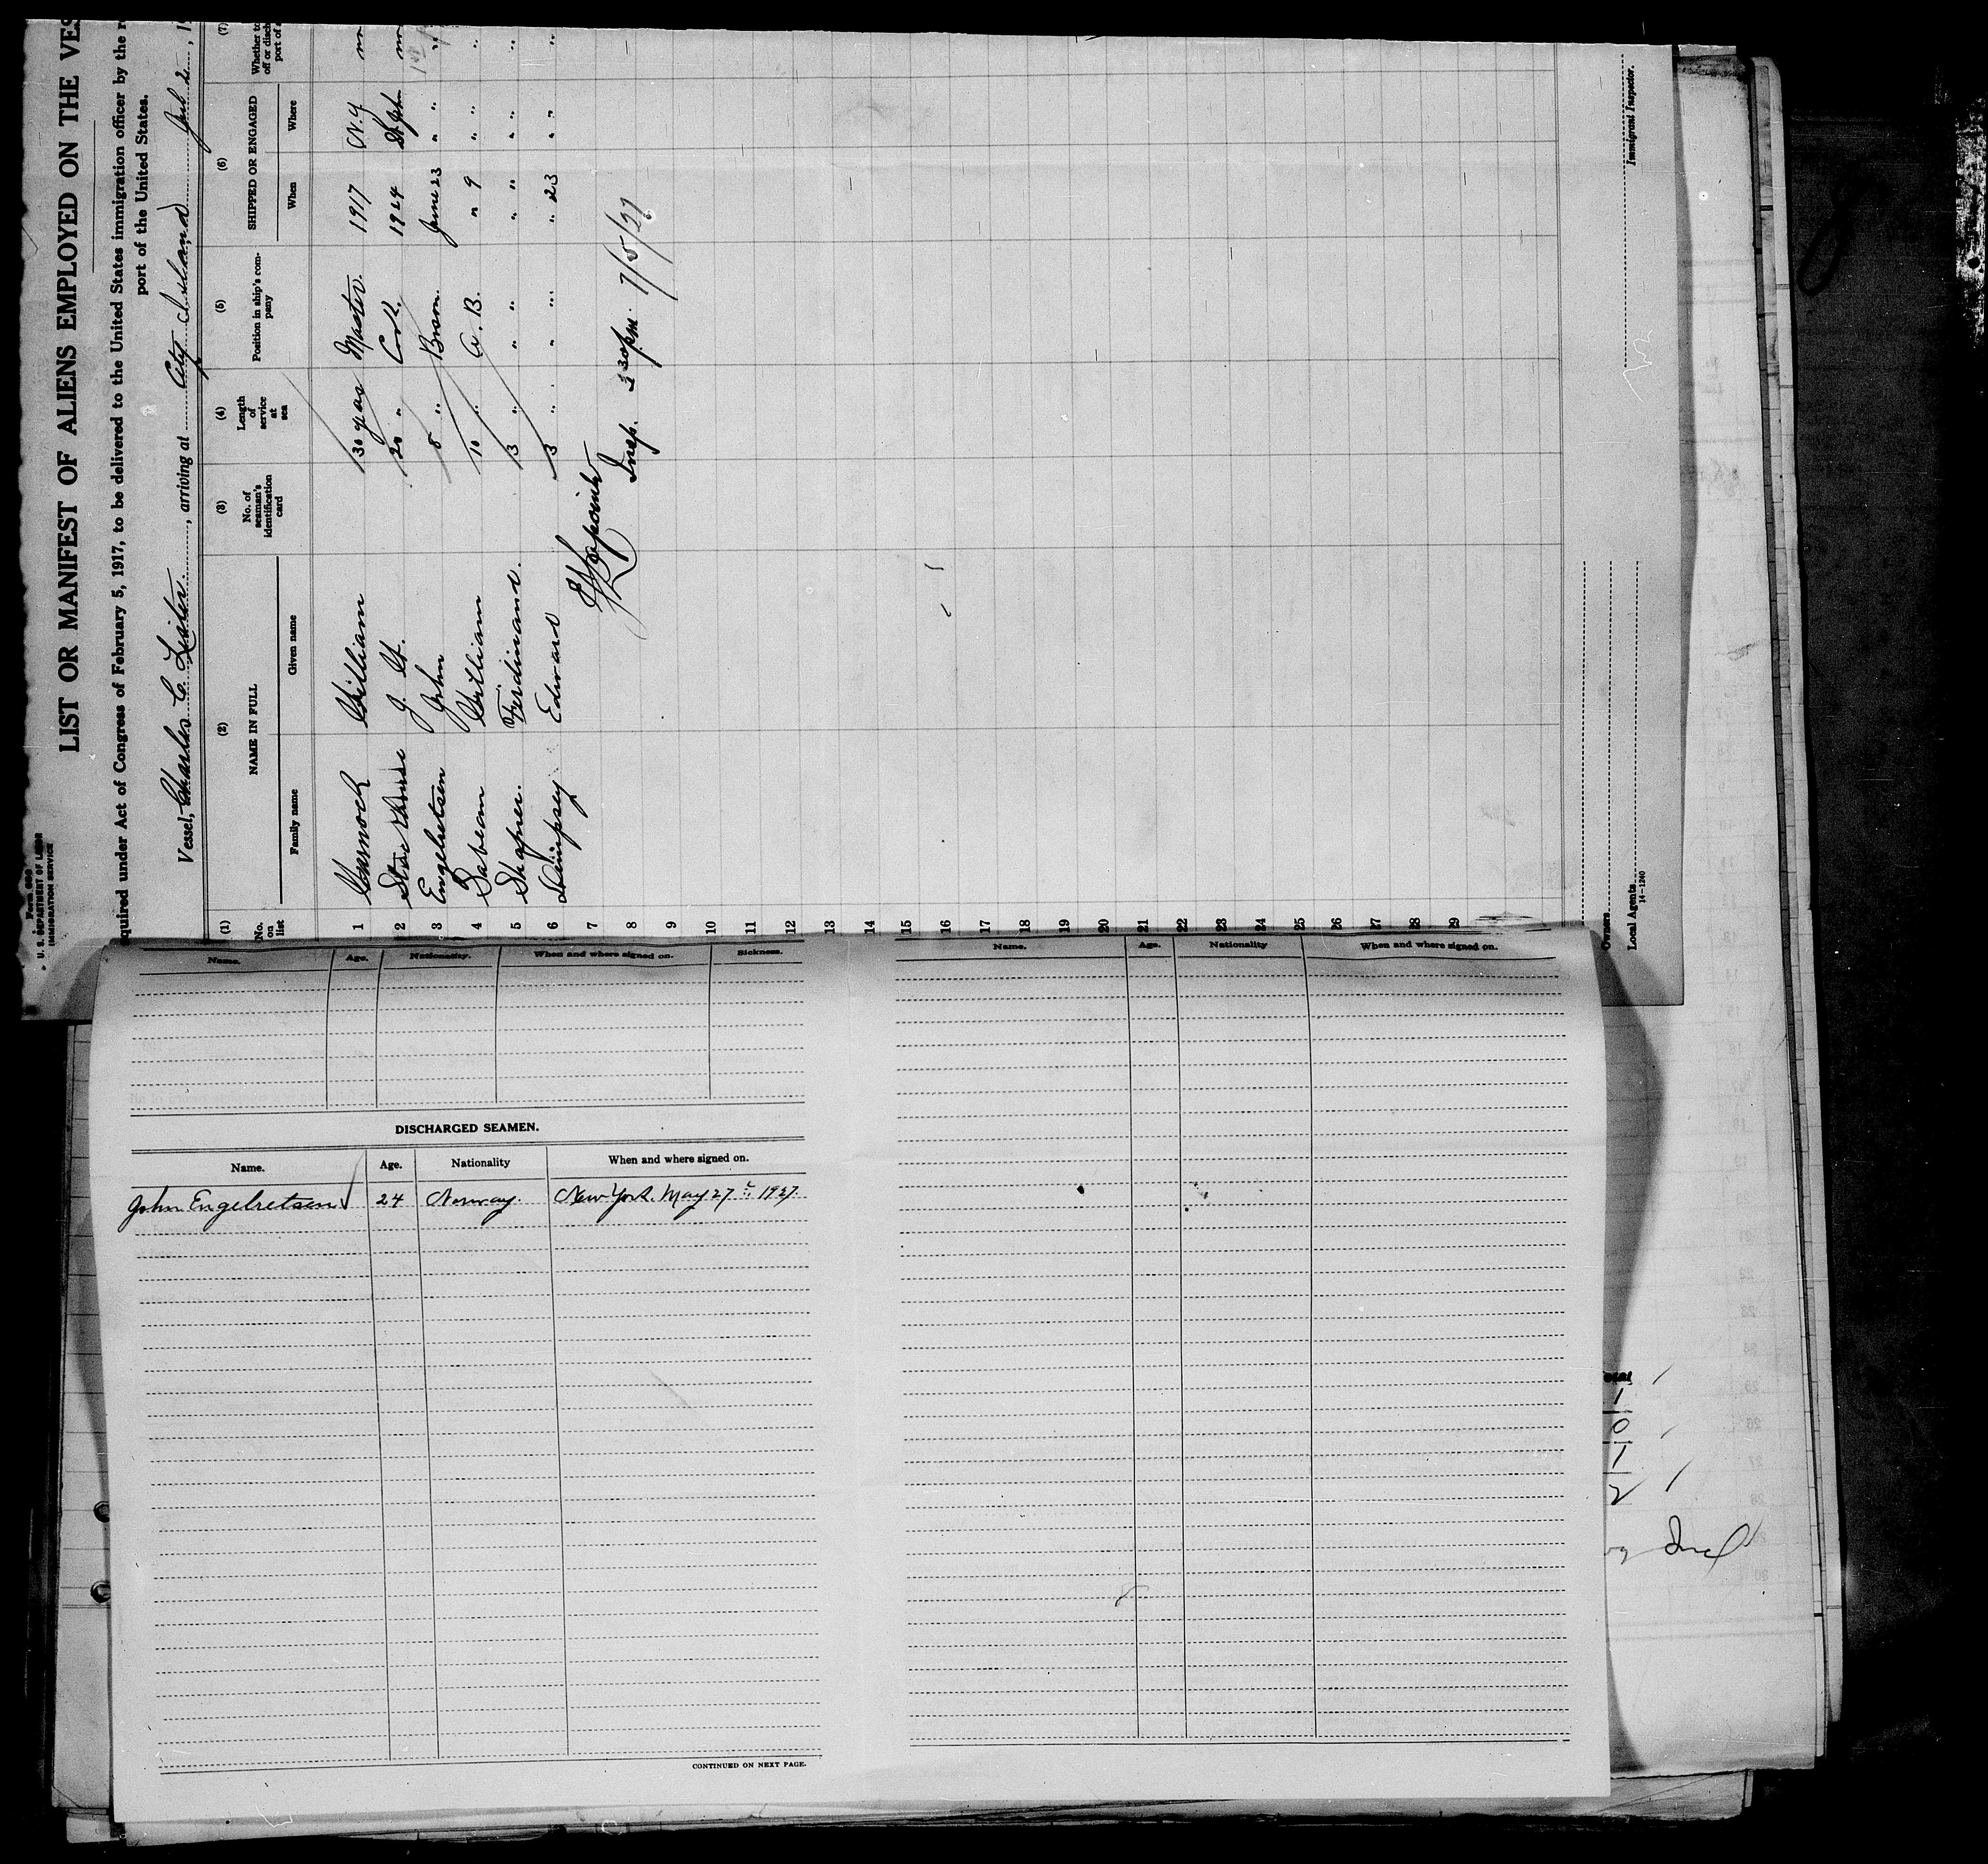 Form 680
U. S. DEPARTMENT OF LABOR
IMMIGRATION SERVICE
LIST OR MANIFEST OF ALIENS EMPLOYED ON THE VES
equired under Act of Congress of February 5, 1917, to be delivered to the United States immigration officer by the r
port of the United States.
Vessel, Charles C. Lister, arriving at City Island July 2, 1
(1) (2) (3) (4) (5) (6) (7)
No. on list NAME IN FULL No. of seaman's identification card Length of service at sea Position in ship's company SHIPPED OR ENGAGED Whether to
off or disch
port of a
Family name Given name When Where
1 William 30 yas Master. 1917 N.Y
2 J. 20 " Cook. 1924 St John
3 Engelretsen John 8 " Bosn. June 23 " "
4 Sabean William 10 " A. B. " 9 " "
5 Shafner. Ferdinand. 3 " " " " " " "
6 Dempsey Edward 3 " " " " 23 " "
7
8 Insp. 3 30 p.m. 7/5/27
9
10
11
12
13
14
15
16
17
18
19
20
21
22
23
24
25
26
27
28
29
Owners
Local Agents
14-1240
Immigrant Inspector.
Name. Age. Nationality. When and where signed on. Sickness.
DISCHARGED SEAMEN.
Name. Age. Nationality When and where signed on.
John Engelretsen 24 Norway. New York. May 27 1927.
CONTINUED ON NEXT PAGE.
Name. Age. Nationality When and where signed on.
1
0
1
2